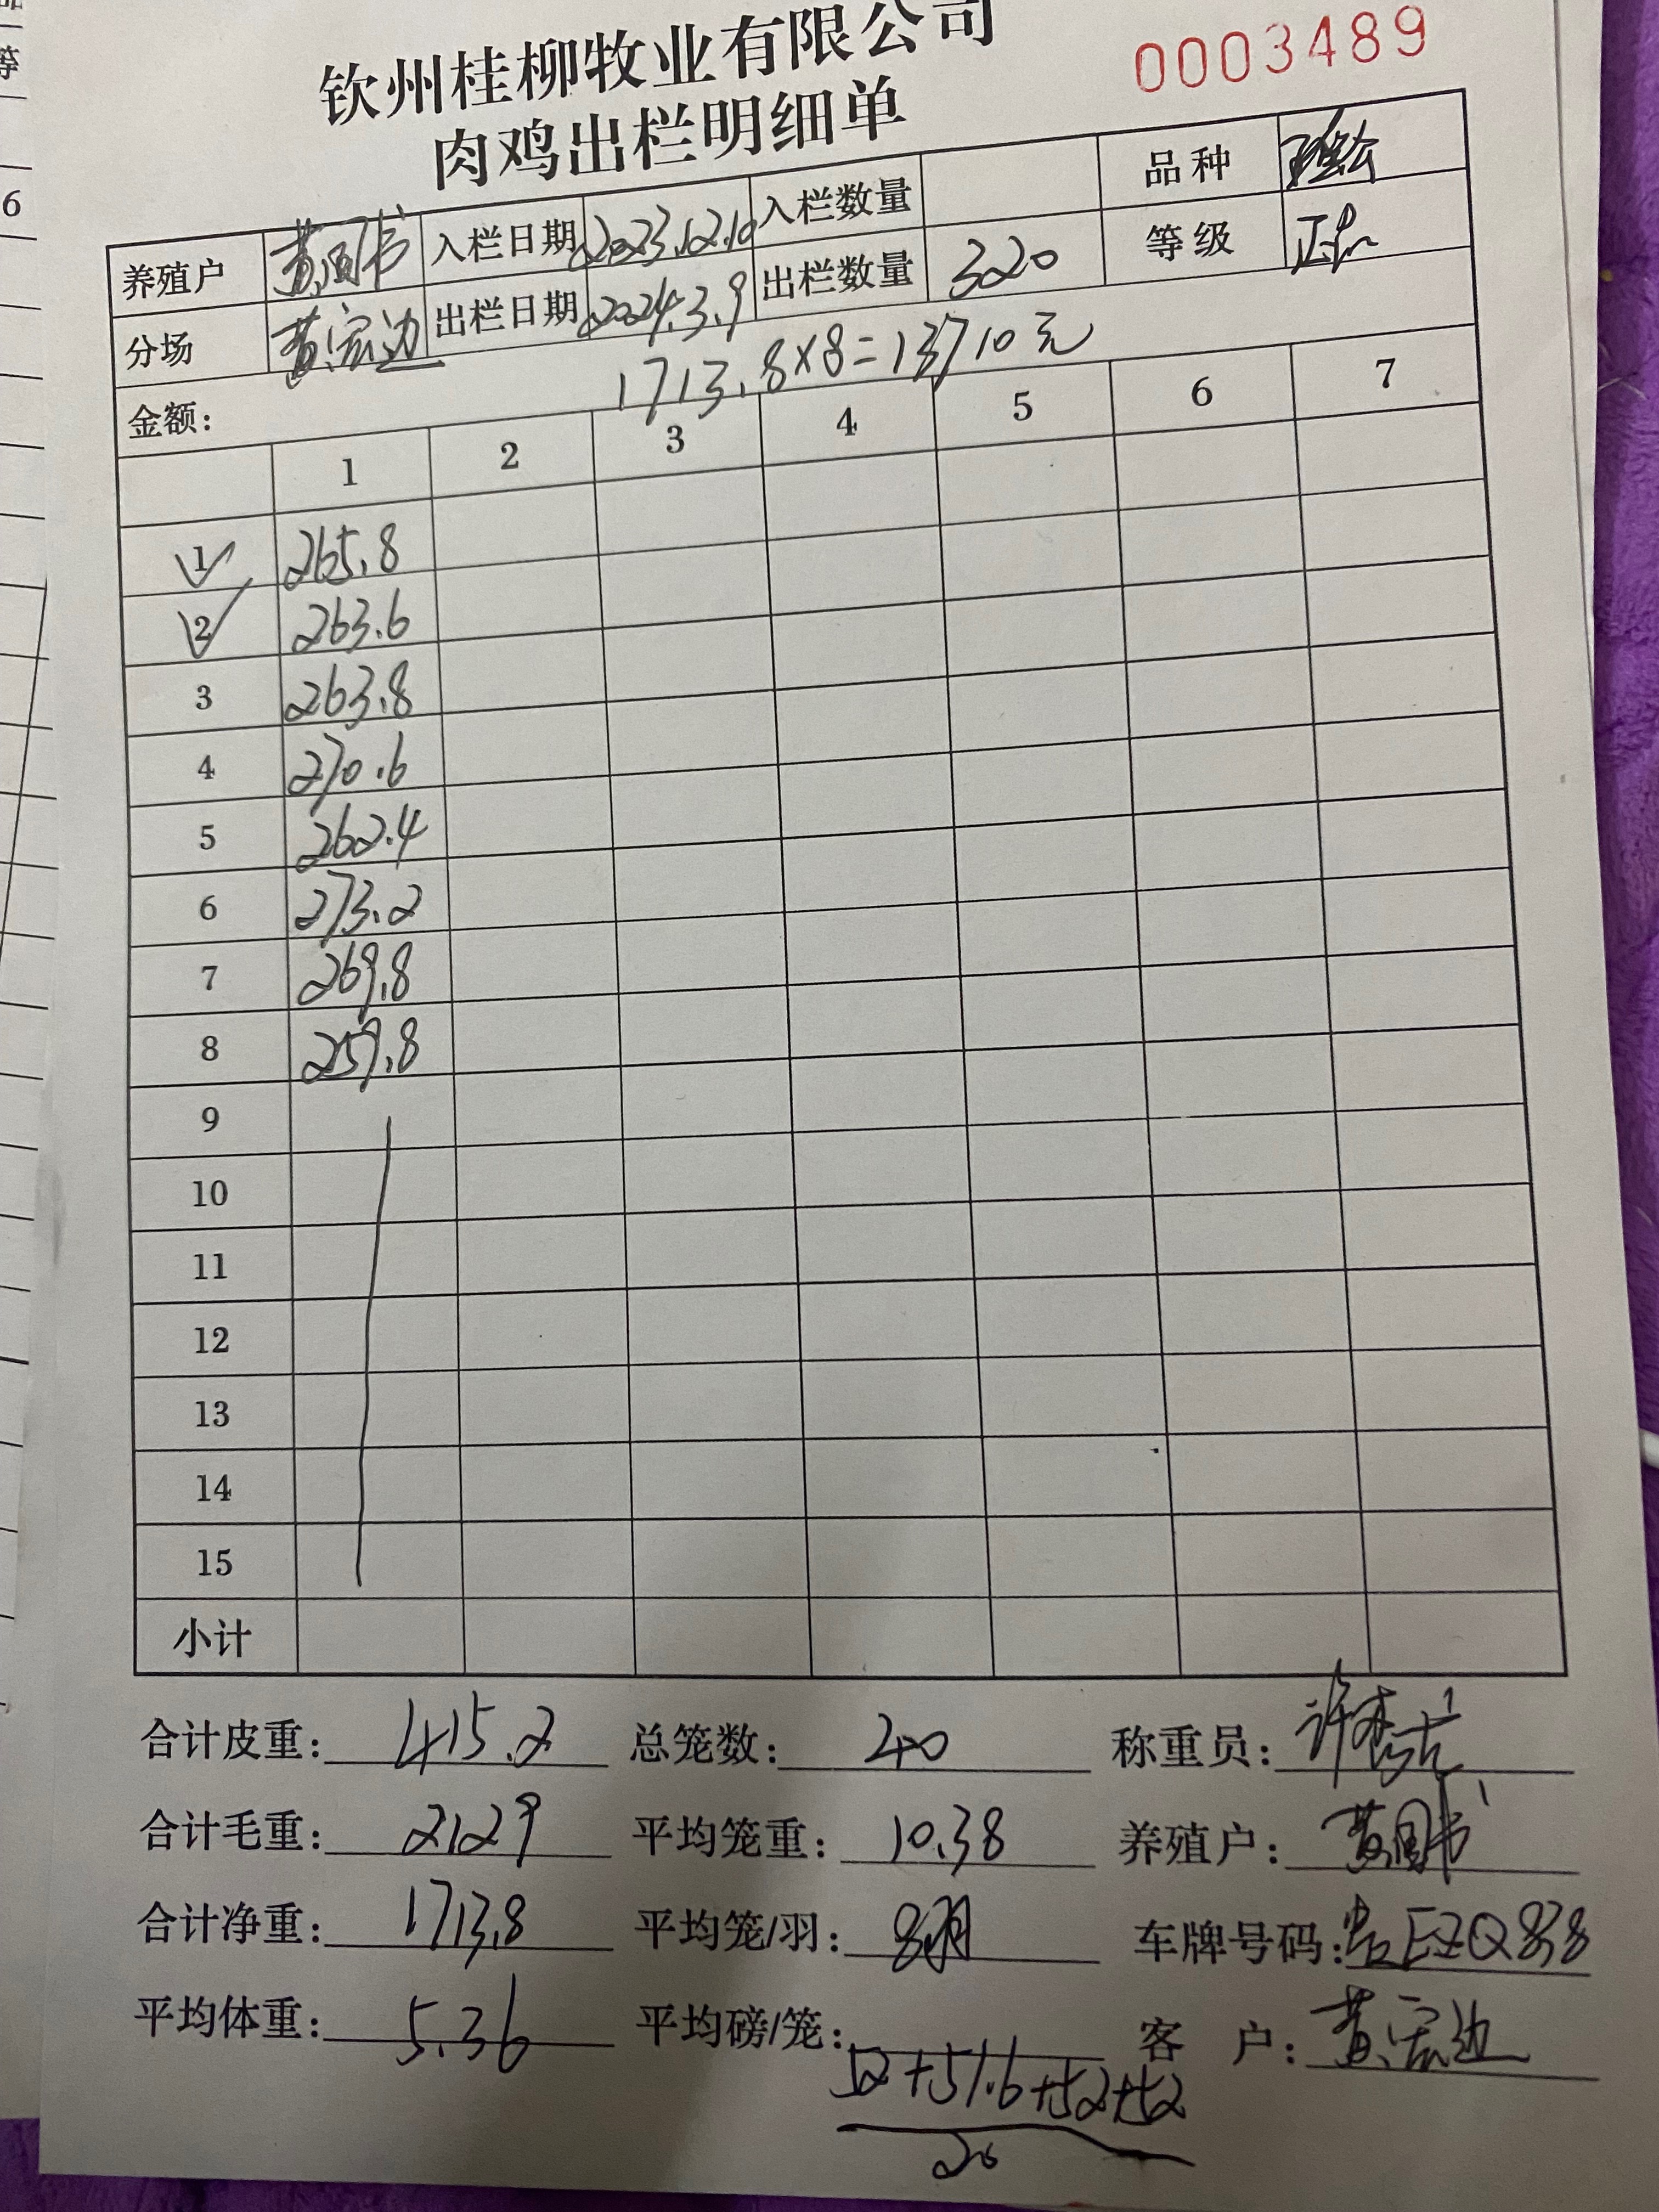 钦州桂柳牧业有限公司
0003489
肉鸡出栏明细单
养殖户 黄图书 入栏日期 2023.12.10 入栏数量 品种
分场 黄宏边 出栏日期 2024.3.9 出栏数量 320 等级 正品
金额: 1713.8×8=13710元
1 2 3 4 5 6 7
1 265.8
2 263.6
3 263.8
4 270.6
5 262.4
6 273.2
7 269.8
8 259.8
9
10
11
12
13
14
15
小计
合计皮重: 415.2 总笼数: 40 称重员:
合计毛重: 2129 平均笼重: 10.38 养殖户: 黄图书
合计净重: 1713.8 平均笼/羽: 8羽 车牌号码: EZQ838
平均体重: 5.36 平均磅/笼: 客 户: 黄宏边
52+51.6+52+52
20
等
6